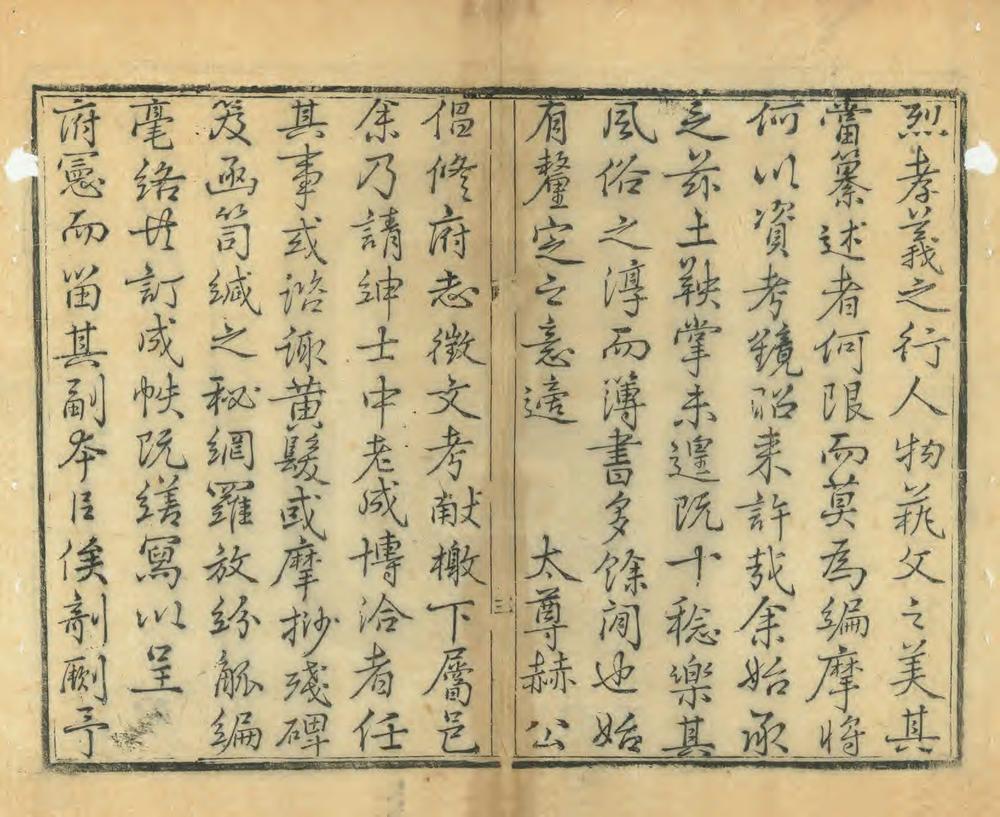 烈孝義之行人物蓺文之美其
當纂述者何限而莫為編摩將
何以資考鏡昭来許哉余始承
乏茲土鞅掌未遑既十稔樂其
風俗之淳而簿書多餘閒也始
有釐定之意適　太尊赫公
倡修府志徵文考献檄下屬邑
余乃請紳士中老成博洽者任
其事或諮諏黄髮或摩抄殘碑
笈函笥緘之秘網羅放紛觚編
毫络廿訂成帙既繕寫以呈
府憲而畱其副本臣俟剞劂予
三